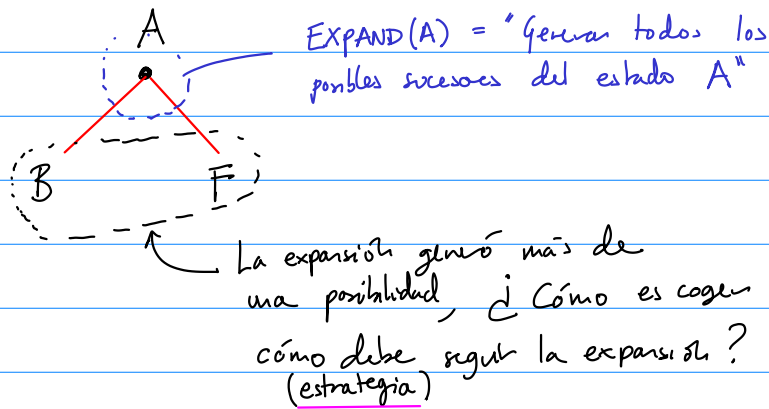 A
EXPAND(A) = "Generar todos los
posibles sucesores del estado A"
B F
La expansión generó más de
una posibilidad, ¿Cómo escoger
cómo debe seguir la expansión?
(estrategia)